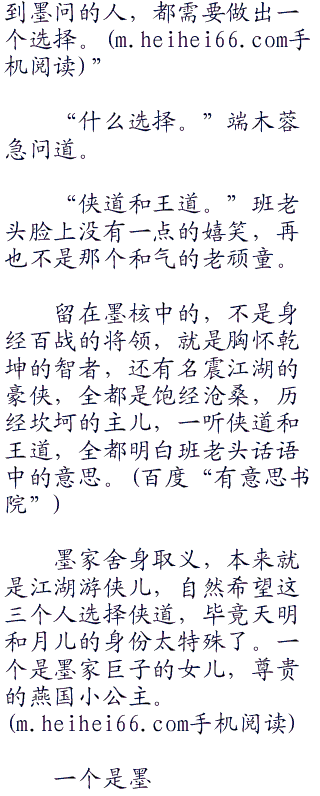 到墨问的人，都需要做出一
个选择。(m.heihei66.com手
机阅读)”
“什么选择。”端木蓉
急问道。
“侠道和王道。”班老
头脸上没有一点的嬉笑，再
也不是那个和气的老顽童。
留在墨核中的，不是身
经百战的将领，就是胸怀乾
坤的智者，还有名震江湖的
豪侠，全都是饱经沧桑，历
经坎坷的主儿，一听侠道和
王道，全都明白班老头话语
中的意思。(百度“有意思书
院”)
墨家舍身取义，本来就
是江湖游侠儿，自然希望这
三个人选择侠道，毕竟天明
和月儿的身份太特殊了。一
个是墨家巨子的女儿，尊贵
的燕国小公主。
(m.heihei66.com手机阅读)
一个是墨